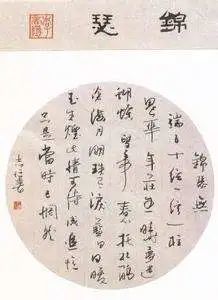 錦瑟
錦瑟無
端五十弦一弦一柱
思華年莊生曉夢迷
蝴蝶望帝春心托杜鵑
滄海月明珠有淚藍田日暖
玉生煙此情可待成追憶
只是當時已惘然